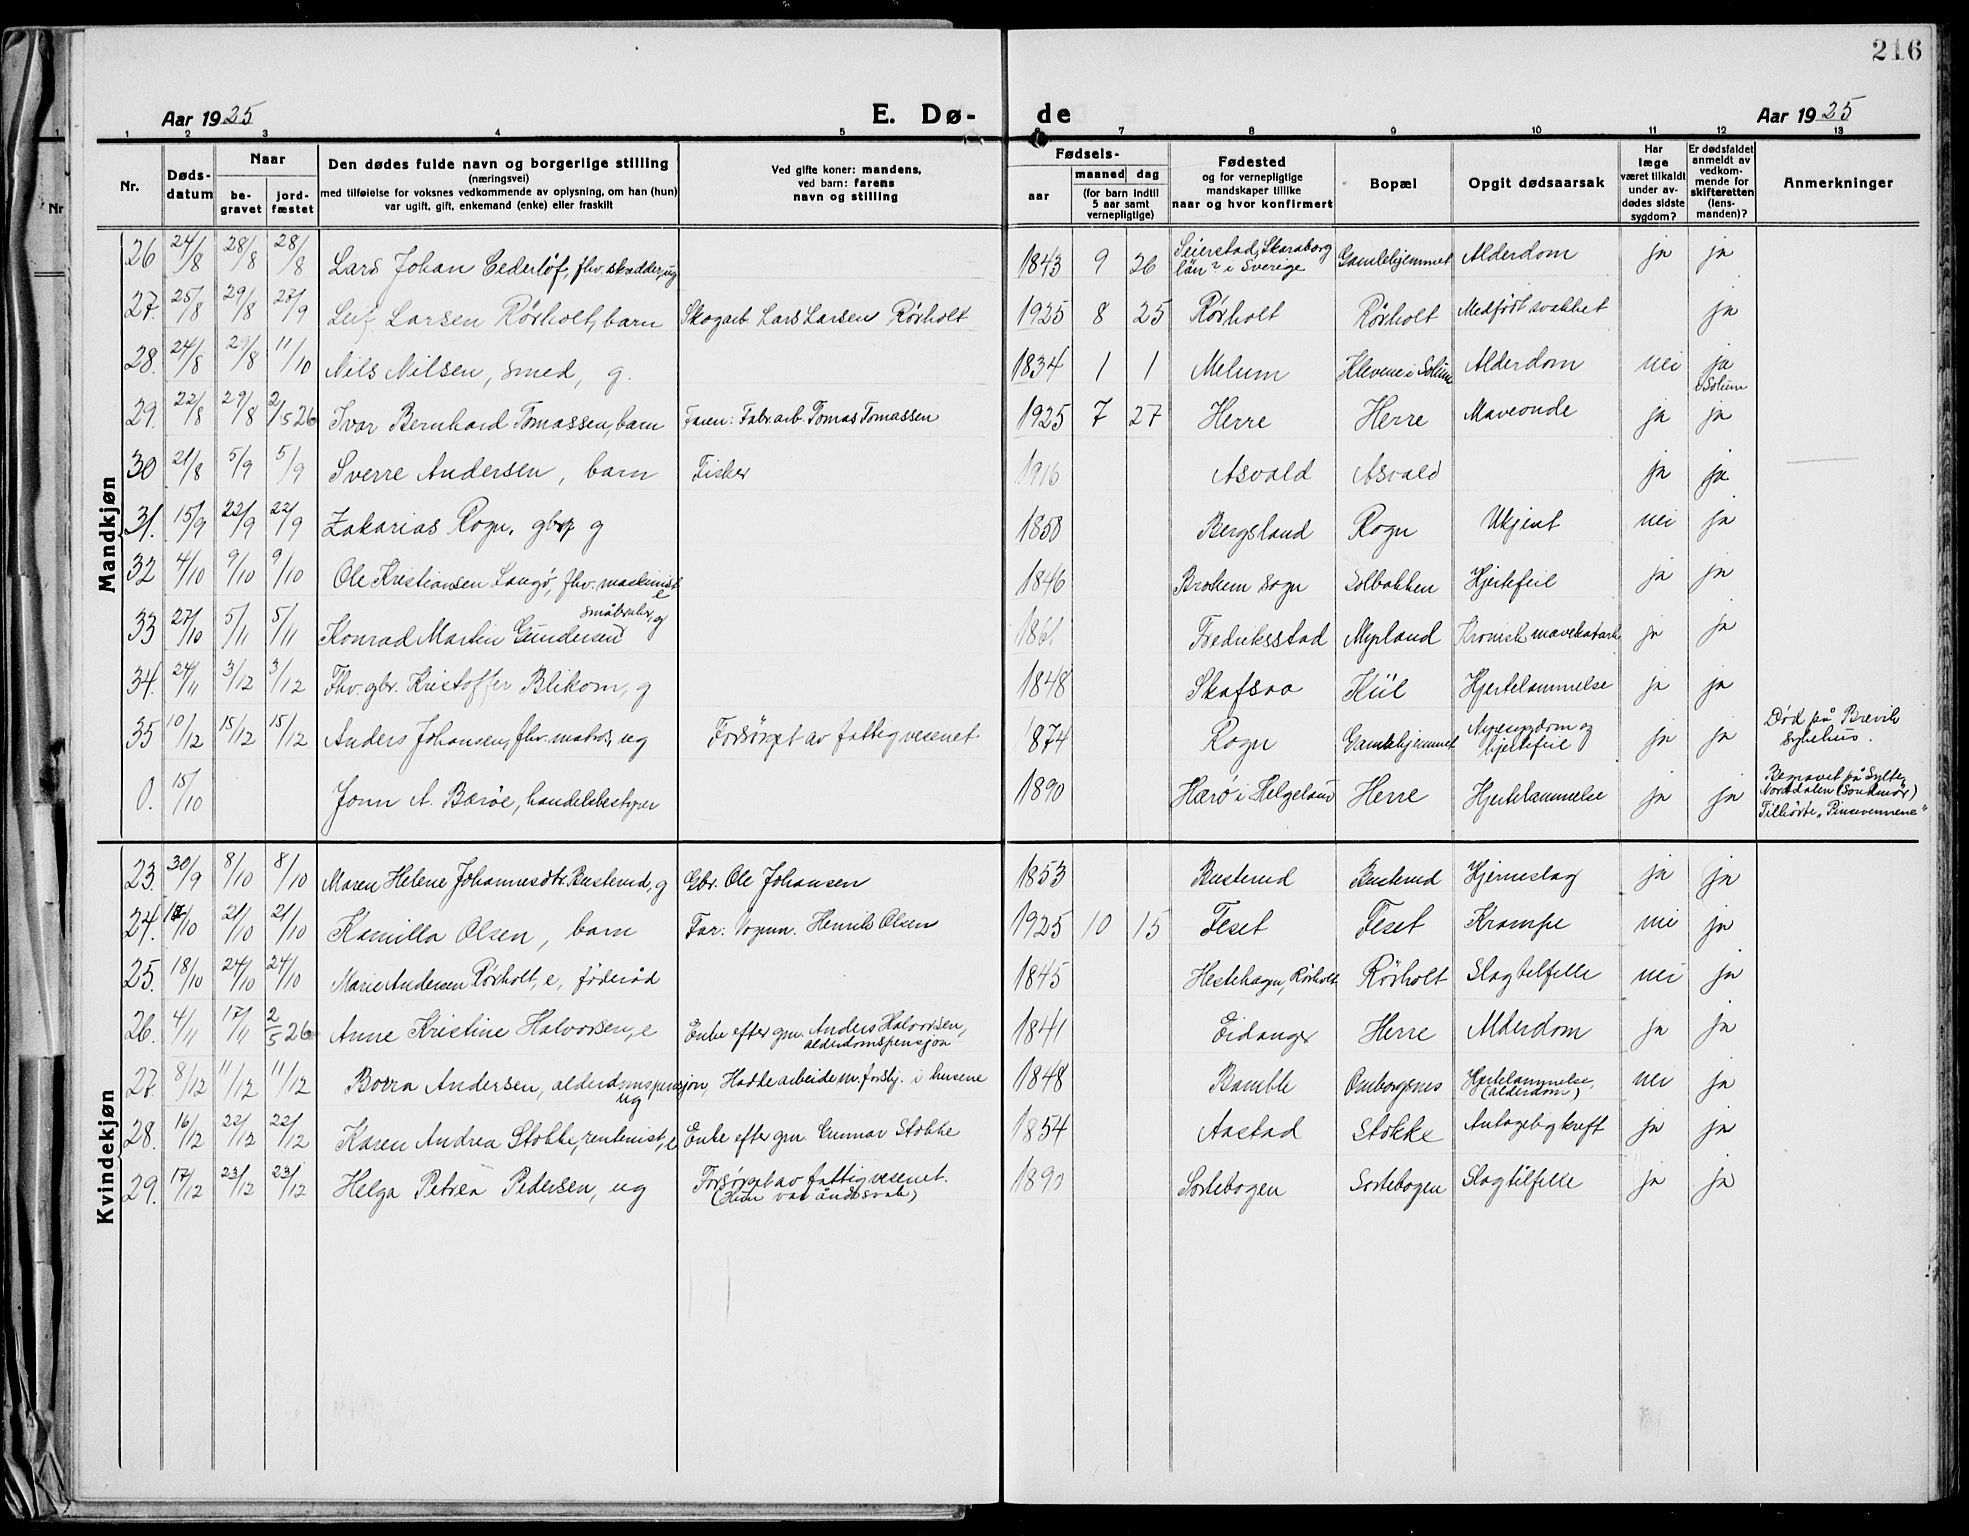 216
Aar 1925 E. Dø- de Aar 1925
1 2 3 4 5 6 7 8 9 10 11 12 13
Nr. Døds-datum Naar be-gravet jord-fæstet Den dødes fulde navn og borgerlige stilling (næringsvei) med tilføielse for voksnes vedkommende av oplysning, om han (hun) var ugift, gift, enkemand (enke) eller fraskilt Ved gifte koner: mandens, ved barn: farens navn og stilling Fødsels- aar maaned dag (for barn indtil 5 aar samt vernepligtige) Fødested og for vernepligtige mandskaper tillike naar og hvor konfirmert Bopæl Opgit dødsaarsak Har læge været tilkaldt under av-dødes sidste sygdom? Er dødsfaldet anmeldt av vedkom-mende for skifteretten (lens-manden)? Anmerkninger
Mandkjøn
26 24/8 28/8 28/8 Lars Johan Cederlöf, fhv. skrædder, ug 1843 9 26 Seierstad, Skaraborg län? i Sverige Gamlehjemmet Alderdom ja ja
27. 25/8 29/8 27/9 Leif Larsen Rörholt, barn Skogarb. Lars Larsen Rörholt 1925 8 25 Rörholt Rörholt Medfödt svakhet ja
28. 24/8 29/8 11/10 Nils Nilsen, smed, g. 1834 1 1 Melum Klevene i Solum Alderdom nei ja i Solum
29. 22/8 29/8 2/5 26 Ivar Bernhard Tomassen, barn Faren: Fabr.arb. Tomas Tomassen 1925 7 27 Herre Herre Maveonde ja ja
30 21/8 5/9 5/9 Sverre Andersen, barn Fisker 1916 Asvald Asvald ja ja
31. 15/9 22/9 22/9 Zakarias Rogn, gbr g 1850 Bergsland Rogn Ukjent nei ja
32 4/10 9/10 9/10 Ole Kristiansen Langö, fhv. maskinist e 1846 sogn Solbakken Hjertefeil ja ja
33 27/10 5/11 5/11 Konrad Martin Gundersen småbruker, g 186 Fredriksstad Myrland Kronisk mavekatarh ja ja
34. 24/11 3/12 3/12 Fhv. gbr. Kristoffer Blikom, g 1848 Skafsaa Kiil Hjertelammelse ja ja
35 10/12 15/12 15/12 Anders Johansen, fhv. matros, ug Forsörget av fattigvesenet 1874 Rogn Gamlehjemmet Nyresygdom og hjertefeil ja ja Död på Brevik Sykehus.
0. 15/10 Jonn A. Baröe, handelsbestyrer 1890 Hærö i Helgeland Herre Hjertelammelse ja ja Begravet på Sylte, Norddalen (Söndmör) Tilhörte „Pinsevennene"
Kvindekjøn
23. 30/9 8/10 8/10 Maren Helene Johannesdtr. Busterud, g Gbr. Ole Johansen 1853 Busterud Busterud Hjerneslag ja ja
24. 17/10 21/10 21/10 Kamilla Olsen, barn Far: Vognm. Henrik Olsen 1925 10 15 Feset Feset Krampe nei ja
25. 18/10 24/10 24/10 Marie Andersen Rörholt, e, föderåd 1845 Hestehagen, Rörholt Rörholt Slagtilfelle nei ja
26. 4/11 17/11 2/5 26 Anne Kristine Halvorsen, e Enke efter gm. Anders Halvorsen, alderdomspensjon 1841 Eidanger Herre Alderdom ja ja
27. 8/12 11/12 11/12 Borra Andersen, alderdomspensjon, ug Hadde arbeide m. forskj. i husene 1848 Bamble Omborgsnes Hjertelammelse, (alderdom) nei ja
28. 16/12 22/12 22/12 Karen Andrea Stokke, rentenist, e Enke efter gm. Gunnar Stokke 1854 Aastad Stokke Antagelig kreft ja ja
29. 17/12 23/12 23/12 Helga Petrea Pedersen, ug Forsörget av fattigvesenet. (Hun var åndssvak) 1890 Sortebogen Sortebogen Slagtilfelle ja ja